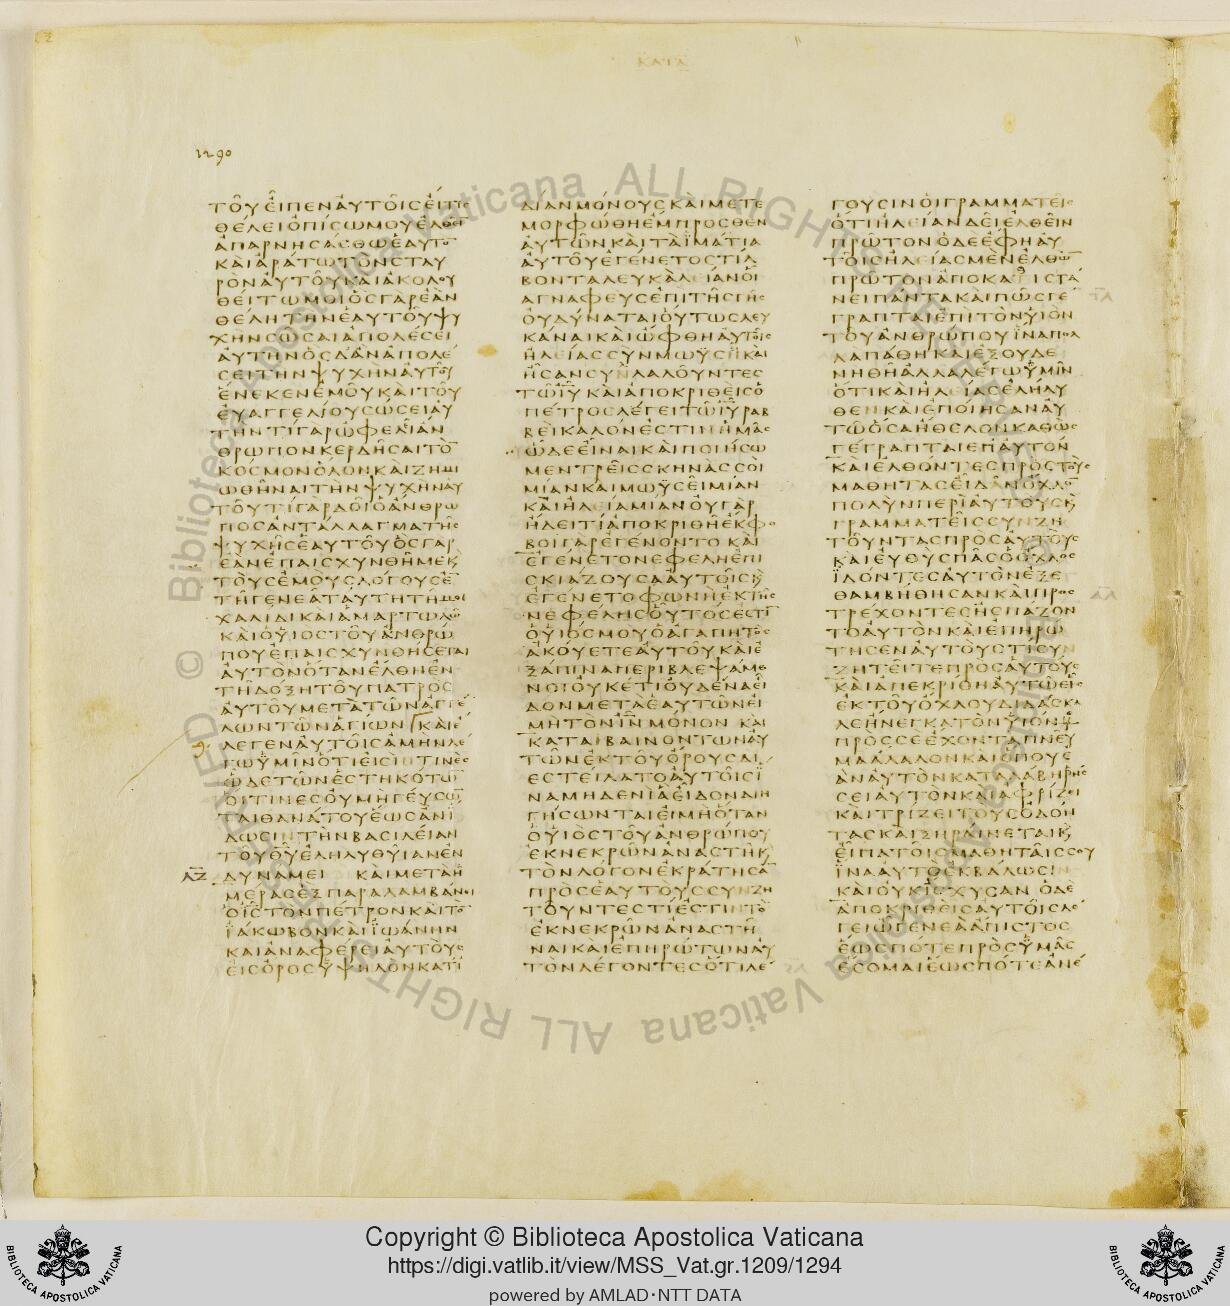 ΚΑΤΑ
1290
ΤΟΥΕΙΠΕΝΑΥΤΟΙΣΕΙΤΙΣ
ΘΕΛΕΙΟΠΙΣΩΜΟΥΕΛΘΕΙΝ
ΑΠΑΡΝΗΣΑΣΘΩΕΑΥΤΟΝ
ΚΑΙΑΡΑΤΩΤΟΝΣΤΑΥ
ΡΟΝΑΥΤΟΥΚΑΙΑΚΟΛΟΥ
ΘΕΙΤΩΜΟΙΟΣΓΑΡΕΑΝ
ΘΕΛΗΤΗΝΕΑΥΤΟΥΨΥ
ΧΗΝΣΩΣΑΙΑΠΟΛΕΣΕΙ
ΑΥΤΗΝΟΣΔΑΝΑΠΟΛΕ
ΣΕΙΤΗΝΨΥΧΗΝΑΥΤΟΥ
ΕΝΕΚΕΝΕΜΟΥΚΑΙΤΟΥ
ΕΥΑΓΓΕΛΙΟΥΣΩΣΕΙΑΥ
ΤΗΝΤΙΓΑΡΩΦΕΛΕΙΑΝ
ΘΡΩΠΟΝΚΕΡΔΗΣΑΙΤΟΝ
ΚΟΣΜΟΝΟΛΟΝΚΑΙΖΗΜΙ
ΩΘΗΝΑΙΤΗΝΨΥΧΗΝΑΥ
ΤΟΥΤΙΓΑΡΔΟΙΟΑΝΘΡΩ
ΠΟΣΑΝΤΑΛΛΑΓΜΑΤΗΣ
ΨΥΧΗΣΕΑΥΤΟΥΟΣΓΑΡ
ΕΑΝΕΠΑΙΣΧΥΝΘΗΜΕΚ
ΤΟΥΣΕΜΟΥΣΛΟΓΟΥΣΕΝ
ΤΗΓΕΝΕΑΤΑΥΤΗΤΗΜΟΙ
ΧΑΛΙΔΙΚΑΙΑΜΑΡΤΩΛΩ
ΚΑΙΟΥΙΟΣΤΟΥΑΝΘΡΩ
ΠΟΥΕΠΑΙΣΧΥΝΘΗΣΕΤΑΙ
ΑΥΤΟΝΟΤΑΝΕΛΘΗΕΝ
ΤΗΔΟΞΗΤΟΥΠΑΤΡΟΣ
ΑΥΤΟΥΜΕΤΑΤΩΝΑΓΓΕ
ΛΩΝΤΩΝΑΓΙΩΝ ΚΑΙΕ
ΛΕΓΕΝΑΥΤΟΙΣΑΜΗΝΛΕ
ΓΩΥΜΙΝΟΤΙΕΙΣΙΝΤΙΝΕΣ
ΩΔΕΤΩΝΕΣΤΗΚΟΤΩΝ
ΟΙΤΙΝΕΣΟΥΜΗΓΕΥΣΩΝ
ΤΑΙΘΑΝΑΤΟΥΕΩΣΑΝΙ
ΔΩΣΙΝΤΗΝΒΑΣΙΛΕΙΑΝ
ΤΟΥΘΥΕΛΗΛΥΘΥΙΑΝΕΝ
ΔΥΝΑΜΕΙ ΚΑΙΜΕΤΑΗ
ΜΕΡΑΣΕΞΠΑΡΑΛΑΜΒΑΝΕΙ
ΟΙΣΤΟΝΠΕΤΡΟΝΚΑΙΤΟΝ
ΪΑΚΩΒΟΝΚΑΙΪΩΑΝΗΝ
ΚΑΙΑΝΑΦΕΡΕΙΑΥΤΟΥΣ
ΕΙΣΟΡΟΣΥΨΗΛΟΝΚΑΤΙ
ΔΙΑΝΜΟΝΟΥΣΚΑΙΜΕΤΕ
ΜΟΡΦΩΘΗΕΜΠΡΟΣΘΕΝ
ΑΥΤΩΝΚΑΙΤΑΪΜΑΤΙΑ
ΑΥΤΟΥΕΓΕΝΕΤΟΣΤΙΛ
ΒΟΝΤΑΛΕΥΚΑΛΕΙΑΝΟΙ
ΑΓΝΑΦΕΥΣΕΠΙΤΗΣΓΗΣ
ΟΥΔΥΝΑΤΑΙΟΥΤΩΣΛΕΥ
ΚΑΝΑΙΚΑΙΩΦΘΗΑΥΤΟΙΣ
ΗΛΕΙΑΣΣΥΝΜΩΥΣΗΚΑΙ
ΗΣΑΝΣΥΝΛΑΛΟΥΝΤΕΣ
ΤΩΙΥΚΑΙΑΠΟΚΡΙΘΕΙΣΟ
ΠΕΤΡΟΣΛΕΓΕΙΤΩΙΥΡΑΒ
ΒΕΙΚΑΛΟΝΕΣΤΙΝΗΜΑΣ
ΩΔΕΕΙΝΑΙΚΑΙΠΟΙΗΣΩ
ΜΕΝΤΡΕΙΣΣΚΗΝΑΣΣΟΙ
ΜΙΑΝΚΑΙΜΩΥΣΕΙΜΙΑΝ
ΚΑΙΗΛΕΙΑΜΙΑΝΟΥΓΑΡ
ΗΔΕΙΤΙΑΠΟΚΡΙΘΗΕΚΦΟ
ΒΟΙΓΑΡΕΓΕΝΟΝΤΟΚΑΙ
ΕΓΕΝΕΤΟΝΕΦΕΛΗΕΠΙ
ΣΚΙΑΖΟΥΣΑΑΥΤΟΙΣΚ
ΕΓΕΝΕΤΟΦΩΝΗΕΚΤΗΣ
ΝΕΦΕΛΗΣΟΥΤΟΣΕΣΤΙΝ
ΟΥΙΟΣΜΟΥΟΑΓΑΠΗΤΟΣ
ΑΚΟΥΕΤΕΑΥΤΟΥΚΑΙΕ
ΞΑΠΙΝΑΠΕΡΙΒΛΕΨΑΜΕ
ΝΟΙΟΥΚΕΤΙΟΥΔΕΝΑΕΙ
ΔΟΝΜΕΤΑΕΑΥΤΩΝΕΙ
ΜΗΤΟΝΙΝΜΟΝΟΝ ΚΑΙ
ΚΑΤΑΒΑΙΝΟΝΤΩΝΑΥ
ΤΩΝΕΚΤΟΥΟΡΟΥΣΔΙ
ΕΣΤΕΙΛΑΤΟΑΥΤΟΙΣΪ
ΝΑΜΗΔΕΝΙΑΕΙΔΟΝΔΙΗ
ΓΗΣΩΝΤΑΙΕΙΜΗΟΤΑΝ
ΟΥΙΟΣΤΟΥΑΝΘΡΩΠΟΥ
ΕΚΝΕΚΡΩΝΑΝΑΣΤΗΚ
ΤΟΝΛΟΓΟΝΕΚΡΑΤΗΣΑΝ
ΠΡΟΣΕΑΥΤΟΥΣΣΥΝΖΗ
ΤΟΥΝΤΕΣΤΙΕΣΤΙΝΤΟ
ΕΚΝΕΚΡΩΝΑΝΑΣΤΗ
ΝΑΙΚΑΙΕΠΗΡΩΤΩΝΑΥ
ΤΟΝΛΕΓΟΝΤΕΣΟΤΙΛΕ
ΓΟΥΣΙΝΟΙΓΡΑΜΜΑΤΕΙΣ
ΟΤΙΗΛΕΙΑΝΔΕΙΕΛΘΕΙΝ
ΠΡΩΤΟΝΟΔΕΕΦΗΑΥ
ΤΟΙΣΗΛΕΙΑΣΜΕΝΕΛΘΩΝ
ΠΡΩΤΟΝΑΠΟΚΑΤΙΣΤΑ
ΝΕΙΠΑΝΤΑΚΑΙΠΩΣΓΕ
ΓΡΑΠΤΑΙΕΠΙΤΟΝΥΙΟΝ
ΤΟΥΑΝΘΡΩΠΟΥΪΝΑΠΟΛ
ΛΑΠΑΘΗΚΑΙΕΞΟΥΔΕ
ΝΗΘΗΑΛΛΑΛΕΓΩΥΜΙΝ
ΟΤΙΚΑΙΗΛΕΙΑΣΕΛΗΛΥ
ΘΕΝΚΑΙΕΠΟΙΗΣΑΝΑΥ
ΤΩΟΣΑΗΘΕΛΟΝΚΑΘΩΣ
ΓΕΓΡΑΠΤΑΙΕΠΑΥΤΟΝ
ΚΑΙΕΛΘΟΝΤΕΣΠΡΟΣΤΟΥΣ
ΜΑΘΗΤΑΣΕΙΔΑΝΟΧΛΟΝ
ΠΟΛΥΝΠΕΡΙΑΥΤΟΥΣΚ
ΓΡΑΜΜΑΤΕΙΣΣΥΝΖΗ
ΤΟΥΝΤΑΣΠΡΟΣΑΥΤΟΥΣ
ΚΑΙΕΥΘΥΣΠΑΣΟΟΧΛΟΣ
ΪΔΟΝΤΕΣΑΥΤΟΝΕΞΕ
ΘΑΜΒΗΘΗΣΑΝΚΑΙΠΡΟΣ
ΤΡΕΧΟΝΤΕΣΗΣΠΑΖΟΝ
ΤΟΑΥΤΟΝΚΑΙΕΠΗΡΩ
ΤΗΣΕΝΑΥΤΟΥΣΤΙΣΥΝ
ΖΗΤΕΙΤΕΠΡΟΣΑΥΤΟΥΣ
ΚΑΙΑΠΕΚΡΙΘΗΑΥΤΩΕΙΣ
ΕΚΤΟΥΟΧΛΟΥΔΙΔΑΣΚΑ
ΛΕΗΝΕΓΚΑΤΟΝΥΙΟΝΜΟΥ
ΠΡΟΣΣΕΕΧΟΝΤΑΠΝΕΥ
ΜΑΑΛΑΛΟΝΚΑΙΟΠΟΥΕ
ΑΝΑΥΤΟΝΚΑΤΑΛΑΒΗΡΗΣ
ΣΕΙΑΥΤΟΝΚΑΙΑΦΡΙΖΕΙ
ΚΑΙΤΡΙΖΕΙΤΟΥΣΟΔΟΝ
ΤΑΣΚΑΙΞΗΡΑΙΝΕΤΑΙΚ
ΕΙΠΑΤΟΙΣΜΑΘΗΤΑΙΣΣΟΥ
ΪΝΑΑΥΤΟΕΚΒΑΛΩΣΙΝ
ΚΑΙΟΥΚΙΣΧΥΣΑΝ ΟΔΕ
ΑΠΟΚΡΙΘΕΙΣΑΥΤΟΙΣΛΕ
ΓΕΙΩΓΕΝΕΑΑΠΙΣΤΟΣ
ΕΩΣΠΟΤΕΠΡΟΣΥΜΑΣ
ΕΣΟΜΑΙΕΩΣΠΟΤΕΑΝΕ
© Biblioteca Apostolica Vaticana ALL RIGHTS RESERVED
Copyright © Biblioteca Apostolica Vaticana
https://digi.vatlib.it/view/MSS_Vat.gr.1209/1294
powered by AMLAD·NTT DATA
BIBLIOTECA APOSTOLICA VATICANA
BIBLIOTECA APOSTOLICA VATICANA